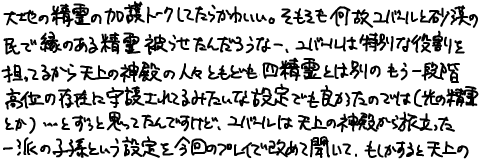 大地の精霊の加護トークしてたらかわいい。そもそも何故ユバールと砂漠の
民で縁のある精霊被らせたんだろうなー、ユバールは特別な役割を
担ってるから天上の神殿の人々ともども四精霊とは別のもう一段階
高位の存在に守護されてるみたいな設定でも良かったのでは(光の精霊
とか)…とずっと思ってたんですけど、ユバールは天上の神殿から旅立った
一派の子孫という設定を今回のプレイで改めて聞いて、もしかすると天上の